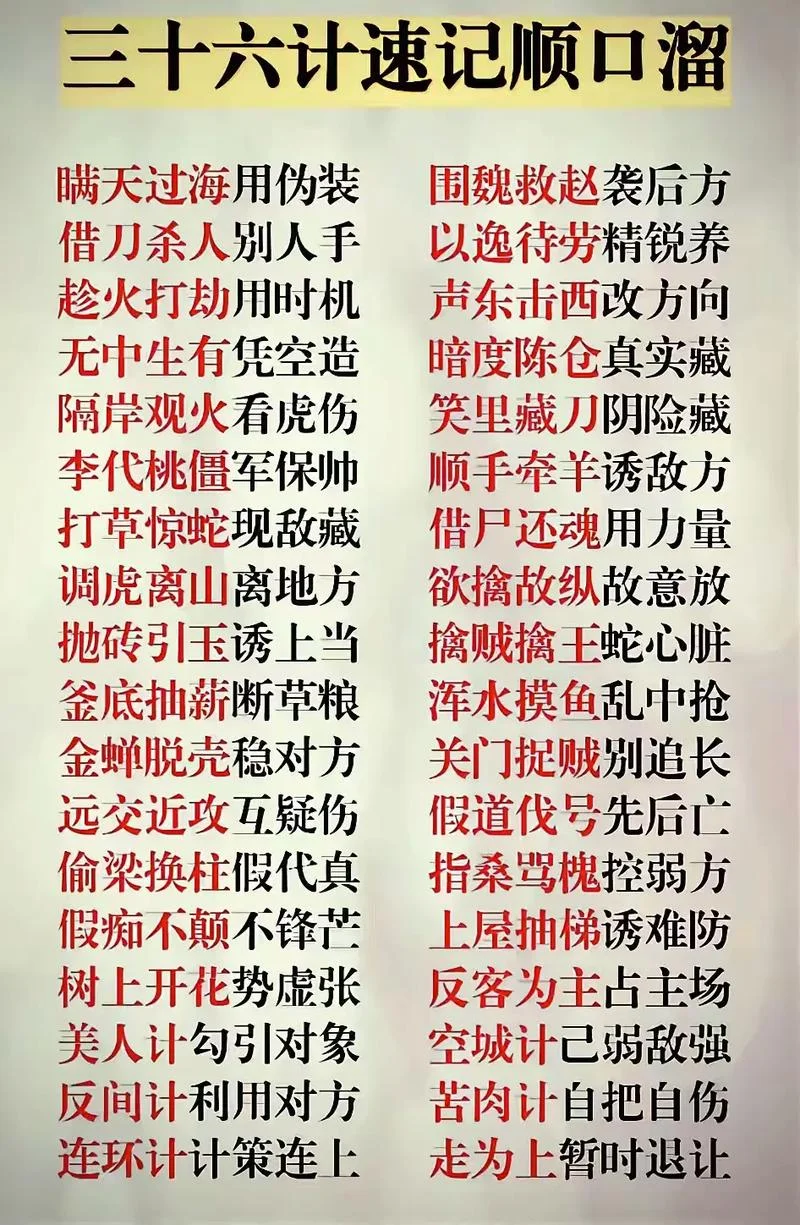 三十六计速记顺口溜
瞒天过海用伪装 围魏救赵袭后方
借刀杀人别人手 以逸待劳精锐养
趁火打劫用时机 声东击西改方向
无中生有凭空造 暗度陈仓真实藏
隔岸观火看虎伤 笑里藏刀阴险藏
李代桃僵军保帅 顺手牵羊诱敌方
打草惊蛇现敌藏 借尸还魂用力量
调虎离山离地方 欲擒故纵故意放
抛砖引玉诱上当 擒贼擒王蛇心脏
釜底抽薪断草粮 浑水摸鱼乱中抢
金蝉脱壳稳对方 关门捉贼别追长
远交近攻互疑伤 假道伐号先后亡
偷梁换柱假代真 指桑骂槐控弱方
假痴不颠不锋芒 上屋抽梯诱难防
树上开花势虚张 反客为主占主场
美人计勾引对象 空城计己弱敌强
反间计利用对方 苦肉计自把自伤
连环计计策连上 走为上暂时退让